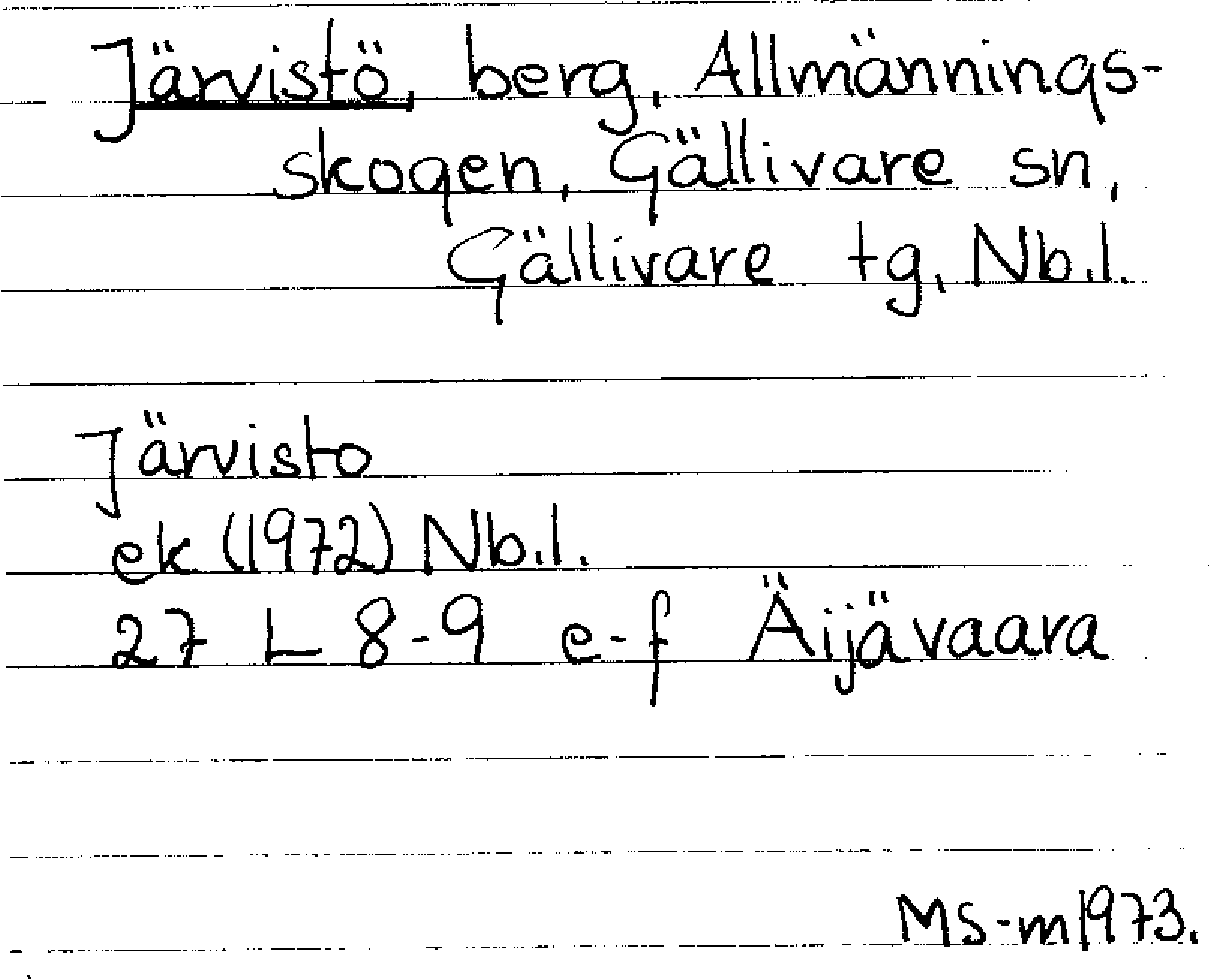 Järvistö, berg, Allmännings-
skogen, Gällivare sn,
Gällivare tg, Nb.l.
Järvisto
ek (1972) Nb.l.
27 L 8-9 e-f Äijävaara
MS-m1973.